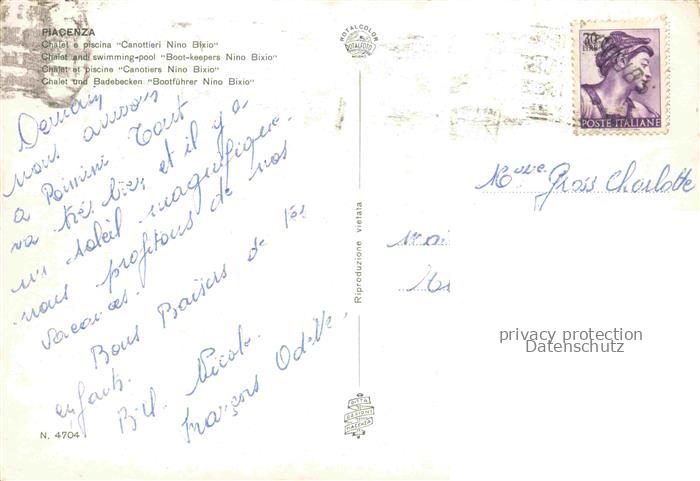 PIACENZA
Chalet e piscina "Canottieri Nino Bixio"
Chalet and swimming-pool "Boot-keepers Nino Bixio"
Chalet et piscine "Canotiers Nino Bixio"
Chalet und Badebecken "Bootführer Nino Bixio"
Demain
nous arrivons
a Rimini. Tout
va très bien et il y a
un soleil magnifique.
nous profitons de nos
vacances.
Bons Baisers de
enfants.
Nicole.
François Odette,
N. 4704
ROTALCOLOR
ROTALFOTO
Riproduzione vietata
DITTA
EDIZIONI
PIACENZA
30
LIRE
POSTE ITALIANE
Mme Gross Charlotte
privacy protection
Datenschutz